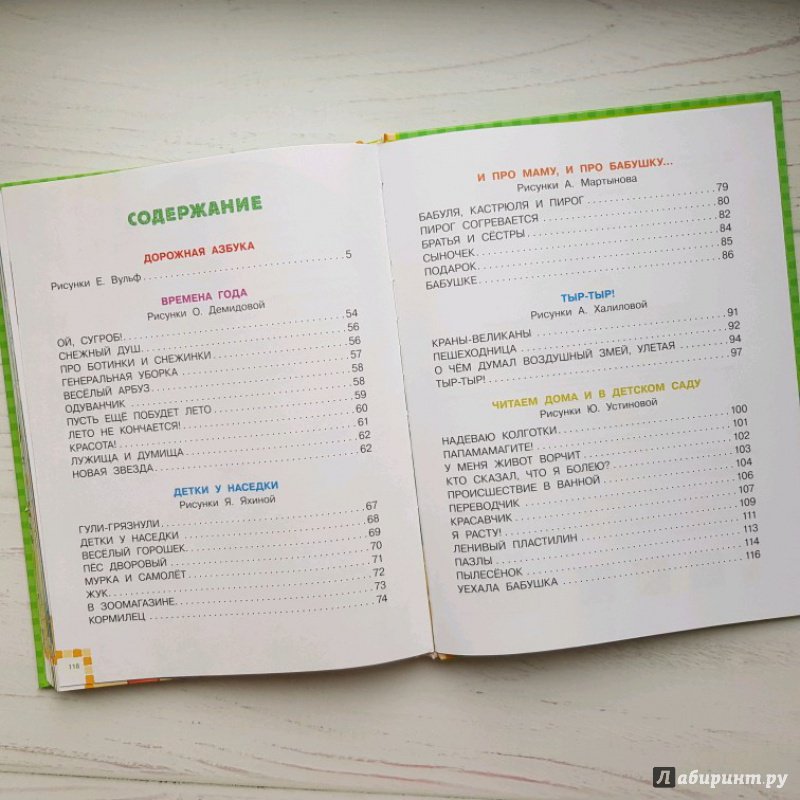 СОДЕРЖАНИЕ
ДОРОЖНАЯ АЗБУКА
Рисунки Е. Вульф 5
ВРЕМЕНА ГОДА
Рисунки О. Демидовой
ОЙ, СУГРОБ! 54
СНЕЖНЫЙ ДУШ 56
ПРО БОТИНКИ И СНЕЖИНКИ 56
ГЕНЕРАЛЬНАЯ УБОРКА 57
ВЕСЁЛЫЙ АРБУЗ 58
ОДУВАНЧИК 58
ПУСТЬ ЕЩЁ ПОБУДЕТ ЛЕТО 59
ЛЕТО НЕ КОНЧАЕТСЯ! 60
КРАСОТА! 61
ЛУЖИЩА И ДУМИЩА 62
НОВАЯ ЗВЕЗДА 62
ДЕТКИ У НАСЕДКИ
Рисунки Я. Яхиной
ГУЛИ-ГРЯЗНУЛИ 67
ДЕТКИ У НАСЕДКИ 68
ВЕСЁЛЫЙ ГОРОШЕК 69
ПЁС ДВОРОВЫЙ 70
МУРКА И САМОЛЁТ 71
ЖУК 72
В ЗООМАГАЗИНЕ 73
КОРМИЛЕЦ 74
118
И ПРО МАМУ, И ПРО БАБУШКУ...
Рисунки А. Мартынова
БАБУЛЯ, КАСТРЮЛЯ И ПИРОГ 79
ПИРОГ СОГРЕВАЕТСЯ 80
БРАТЬЯ И СЁСТРЫ 82
СЫНОЧЕК 84
ПОДАРОК 85
БАБУШКЕ 86
ТЫР-ТЫР!
Рисунки А. Халиловой
КРАНЫ-ВЕЛИКАНЫ 91
ПЕШЕХОДНИЦА 92
О ЧЁМ ДУМАЛ ВОЗДУШНЫЙ ЗМЕЙ, УЛЕТАЯ 94
ТЫР-ТЫР! 97
ЧИТАЕМ ДОМА И В ДЕТСКОМ САДУ
Рисунки Ю. Устиновой
НАДЕВАЮ КОЛГОТКИ 100
ПАПАМАМАГИТЕ! 101
У МЕНЯ ЖИВОТ ВОРЧИТ 102
КТО СКАЗАЛ, ЧТО Я БОЛЕЮ? 103
ПРОИСШЕСТВИЕ В ВАННОЙ 104
ПЕРЕВОДЧИК 106
КРАСАВЧИК 107
Я РАСТУ! 109
ЛЕНИВЫЙ ПЛАСТИЛИН 111
ПАЗЛЫ 113
ПЫЛЕСЁНОК 114
УЕХАЛА БАБУШКА 116
Лабиринт.ру